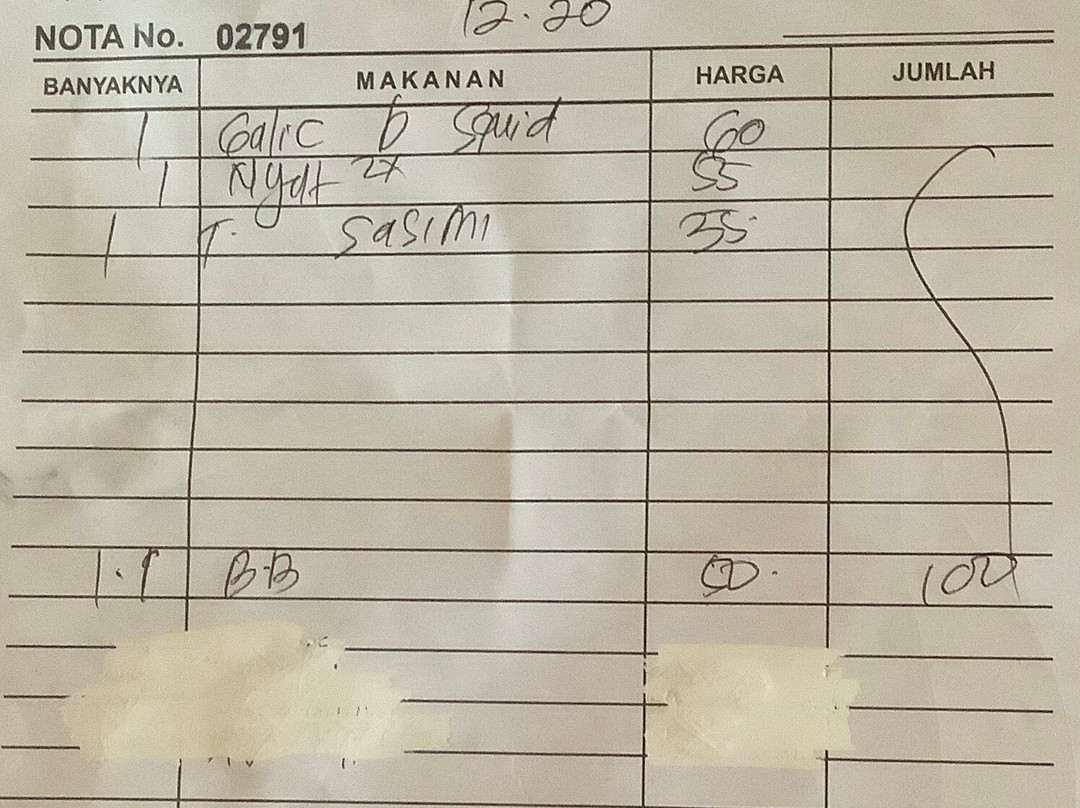 12.20
NOTA No. 02791
BANYAKNYA MAKANAN HARGA JUMLAH
1 Galic b squid 60
1 2x 55
1 T. sasimi 35
1.1 B.B 50. 100